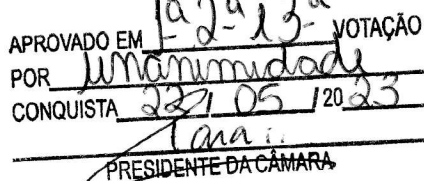 APROVADO EM 1ª 2ª 13ª VOTAÇÃO
POR unanimidade
CONQUISTA 22/05/2023
PRESIDENTE DA CÂMARA